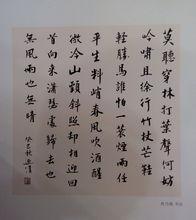 莫聽穿林打葉聲何妨
吟嘯且徐行竹杖芒鞋
輕勝馬誰怕一蓑煙雨任
平生料峭春風吹酒醒
微冷山頭斜照却相迎回
首向來蕭瑟處歸去也
無風雨也無晴 癸巳秋